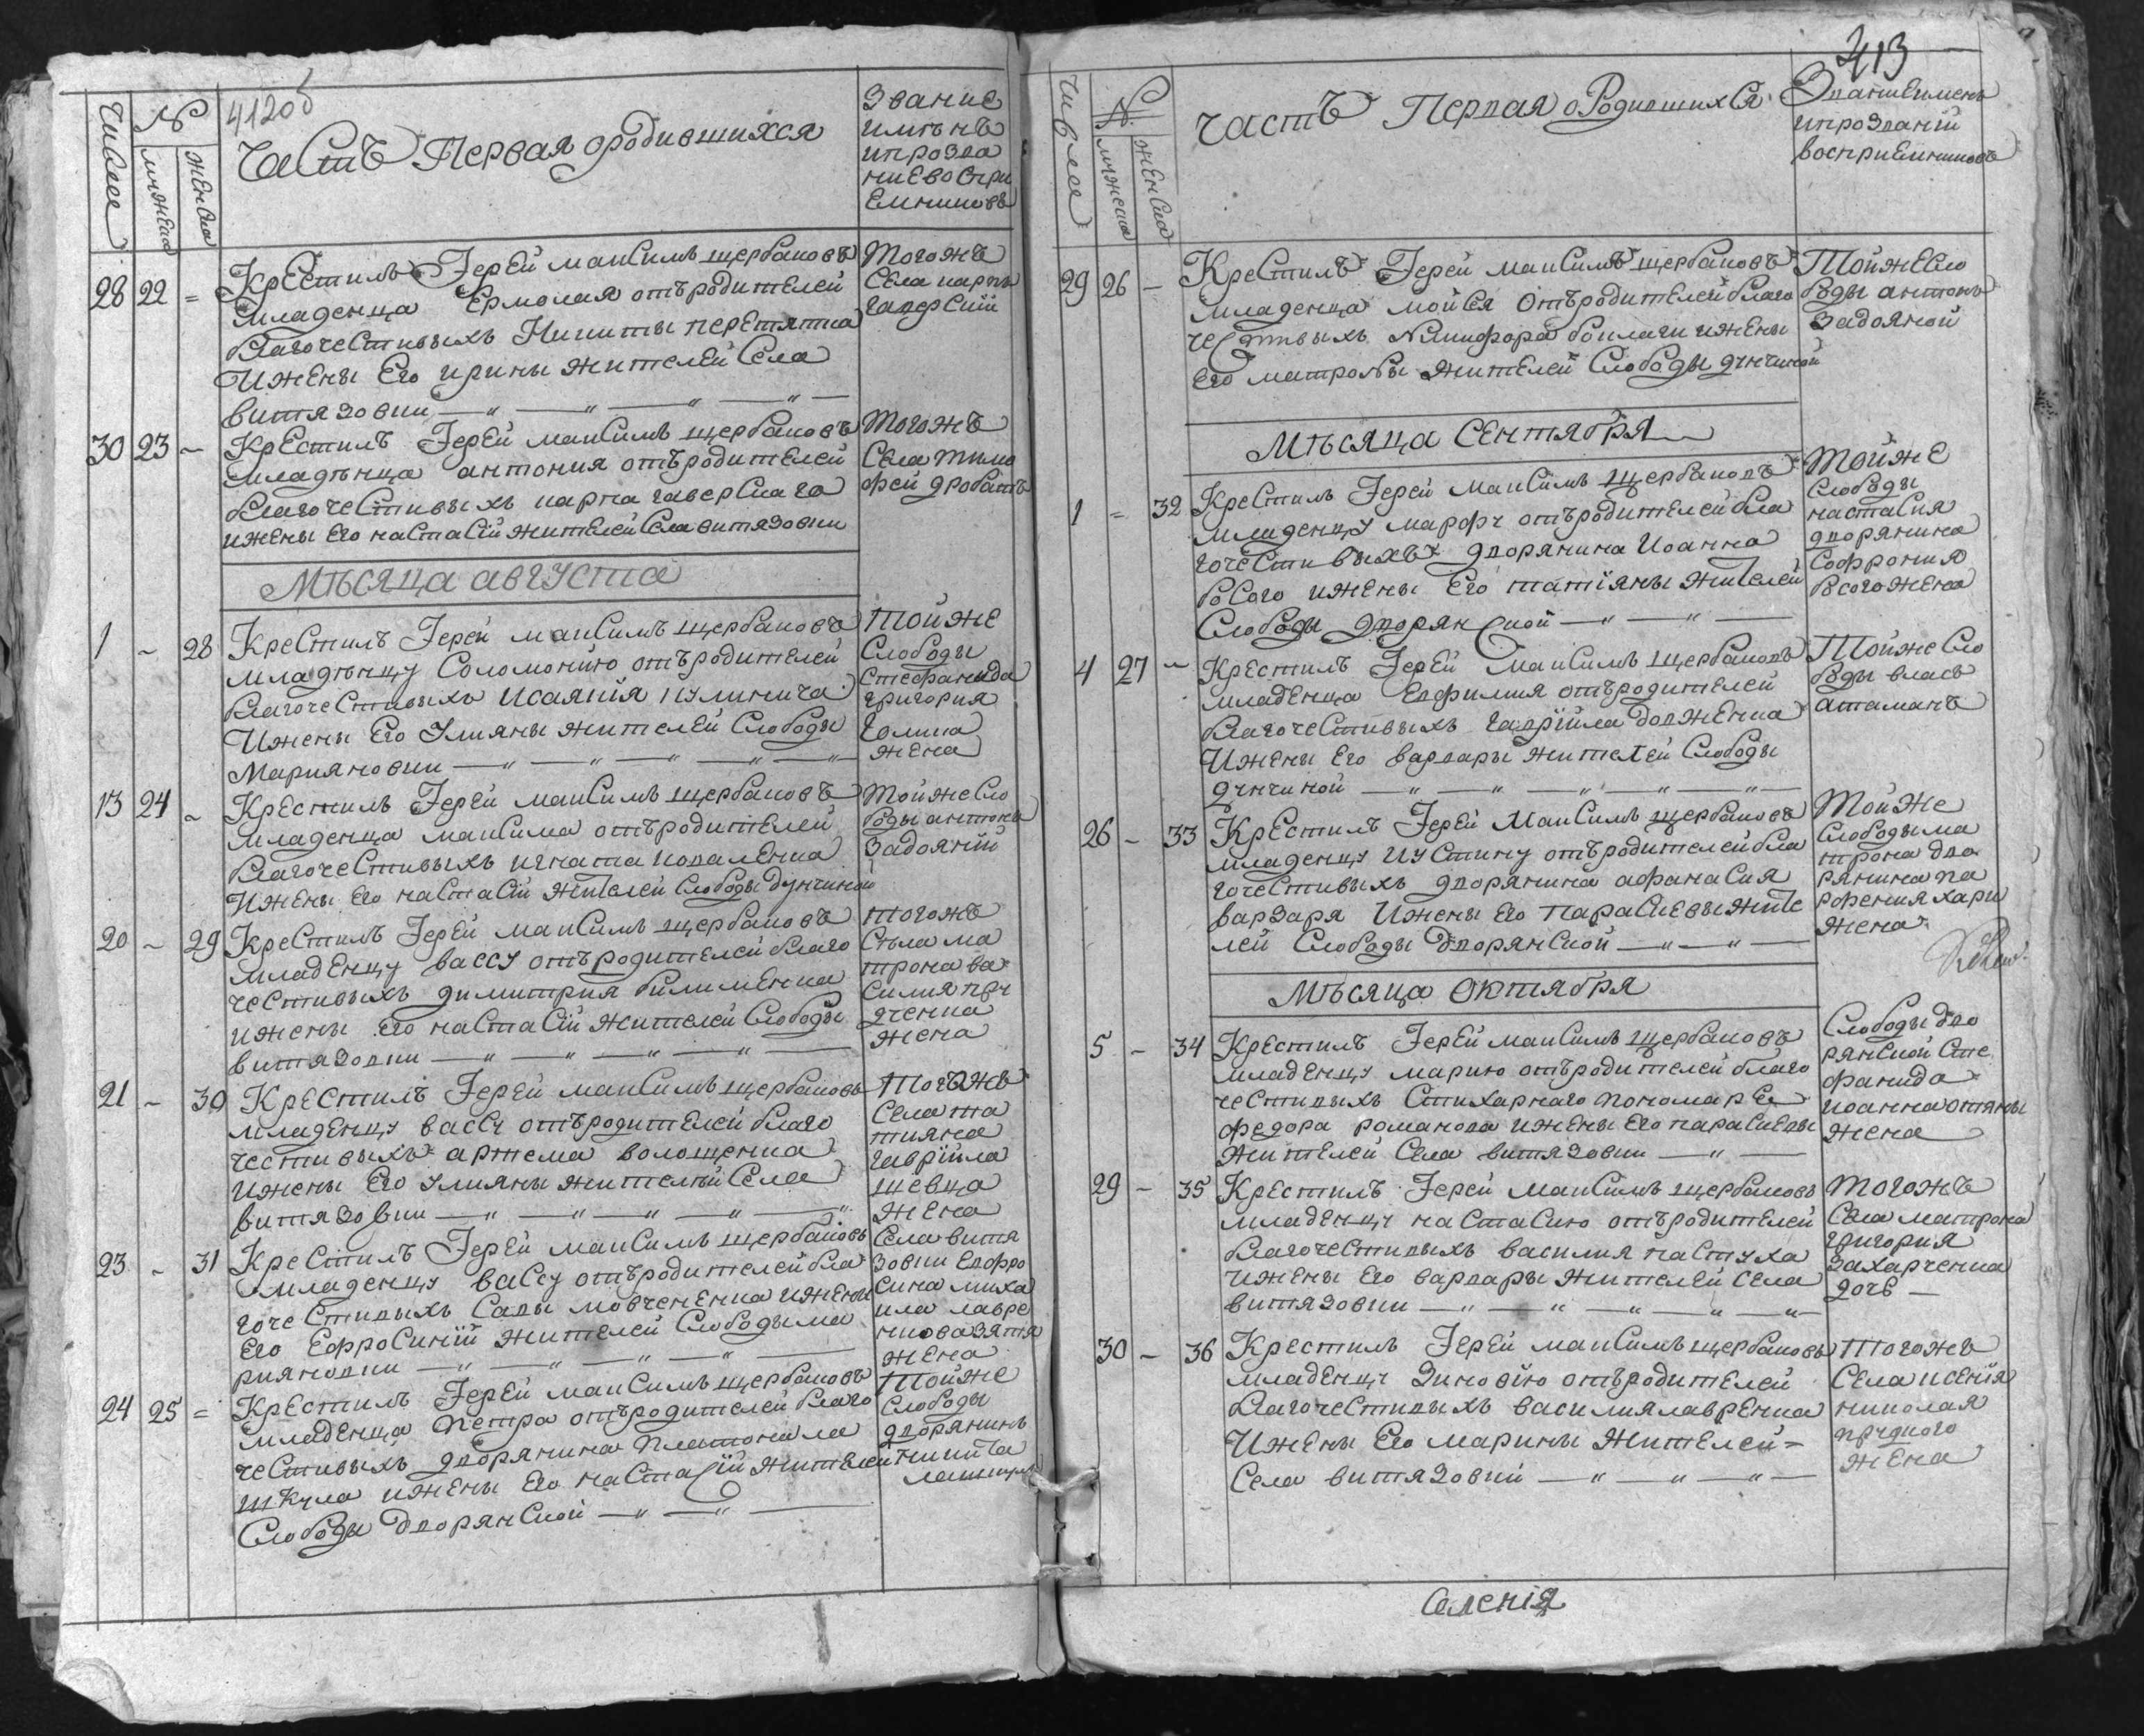 412об
Число
№
мужеска
женска
Часть Первая ородившихся
Звание
имѣнъ
ипрозва
ниевоспри
Емниковъ
28 22 =
Крестилъ Іерей максимъ щербаковъ
младенца Ермолая отъродителей
благочестивыхъ Никиты перетятка
Ижены Его ирины жителей Села
витязовки
Тогожъ
Села карпъ
гаверский
30 23 -
Крестилъ Іерей максимъ щербаковъ
младѣнца антония отъродителей
благочестивыхъ карпа гаверскаго
ижены Его настасій жителей Села витязовки
Тогожъ
Села тимо
фей дробатъ
Мѣсяца августа
1 - 28
Крестилъ Іерей максимъ щербаковъ
младѣнцу Соломонію отъродителей
благочестивыхъ Исаяпія кулинича
Ижены Его Улияны жителей Слободы
Марияновки
Тойже
Слободы
Стефанида
григория
голика
жена
13 24 -
Крестилъ Іерей максимъ щербаковъ
младенца максима отъродителей
благочестивыхъ игната коваленка
Ижены Его настасій жителей Слободы дунчиной
Тойжесло
боды антонъ
Задояний
20 - 29
Крестилъ Іерей максимъ щербаковъ
младенцу вассу отъродителей благо
честивыхъ димитрия билименка
ижены Его настасій жителей Слободы
витязовки
тогожъ
Стьла ма
трона ва
силия пру
дченка
жена
21 - 30
Крестилъ Іерей максимъ щербаковъ
младенцу вассу отъродителей благо
честивыхъ артема волощенка
ижены Его улияны жителѣй Села
витязовки
Тогожъ
Села та
тияна
гавріила
шевца
жена
23 - 31
Крестилъ Іерей максимъ щербаковъ
младенцу вассу отъродителей бла
гочестивыхъ Савы мовчененка ижены
Его Ефросиній жителей Слободы ма
рияновки
Села витя
зовки Евфро
сина миха
ила лавре
нкова зятя
жена
24 25 =
Крестилъ Іерей максимъ щербаковъ
младенца Петра отъродителей благо
честивыхъ дворянина платона ла
шкула ижены Его настасій жителей
Слободы дворянской
Тойже
Слободы
дворянинъ
никита
413
Число
№
мужеска
женска
часть Первая оРодившихся
Званиеименъ
ипрозваній
воспріемниковъ
29 26 -
Крестилъ Іерей максимъ щербаковъ
младенца мойсея отъродителей благо
честивыхъ Никифора боклаги ижены
Его матроны жителей Слободы дунчиной
Тойжесло
боды антонъ
задояной
Мѣсяца Сентября
1 = 32
Крестилъ Іерей максимъ щербаковъ
младенцу марфу отъродителей бла
гочестивыхъ дворянина Иоанна
босого ижены Его татіяны жителей
Слободы дворянской
Тойже
слободы
настасия
дворянина
Софрония
босогожена
4 27 -
Крестилъ Іерей максимъ щербаковъ
младенца Евфимия отъродителей
благочестивыхъ гавріила довженка
Ижены Его варвары жителей Слободы
дунчиной
Тойжесло
боды власъ
атаманъ
26 - 33
Крестилъ Іерей Максимъ щербаковъ
младенцу Иустину отъродителей бла
гочестивыхъ дворянина афанасия
варзаря Ижены Его Параскевы жите
лей Слободы дворянской
Тойже
слободы ма
трона дво
рянина па
рфения хари
жена
Мѣсяца Октября
5 - 34
Крестилъ Іерей максимъ щербаковъ
младенцу марию отъродителей благо
честивыхъ Стихарнаго пономаря
федора романова ижены Его параскевы
жителей Села витязовки
Слободы дво
рянской Сте
фанида
иоанна отяны
жена
29 - 35
Крестилъ Іерей максимъ щербаковъ
младенцу настасию отъродителей
благочестивыхъ василия пастуха
ижены Его варвары жителей села
витязовки
Тогожъ
Села матрона
григория
захарченка
дочь
30 - 36
Крестилъ Іерей максимъ щербаковъ
младенцу Зиновію отъродителей
благочестивыхъ василиялавренка
Ижены Его марины жителей =
Села витязовки
Тогожъ
Села ксенія
николая
прудкого
жена
Селенія